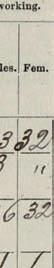 working.
les. Fem.
3 32
3 "
6 32